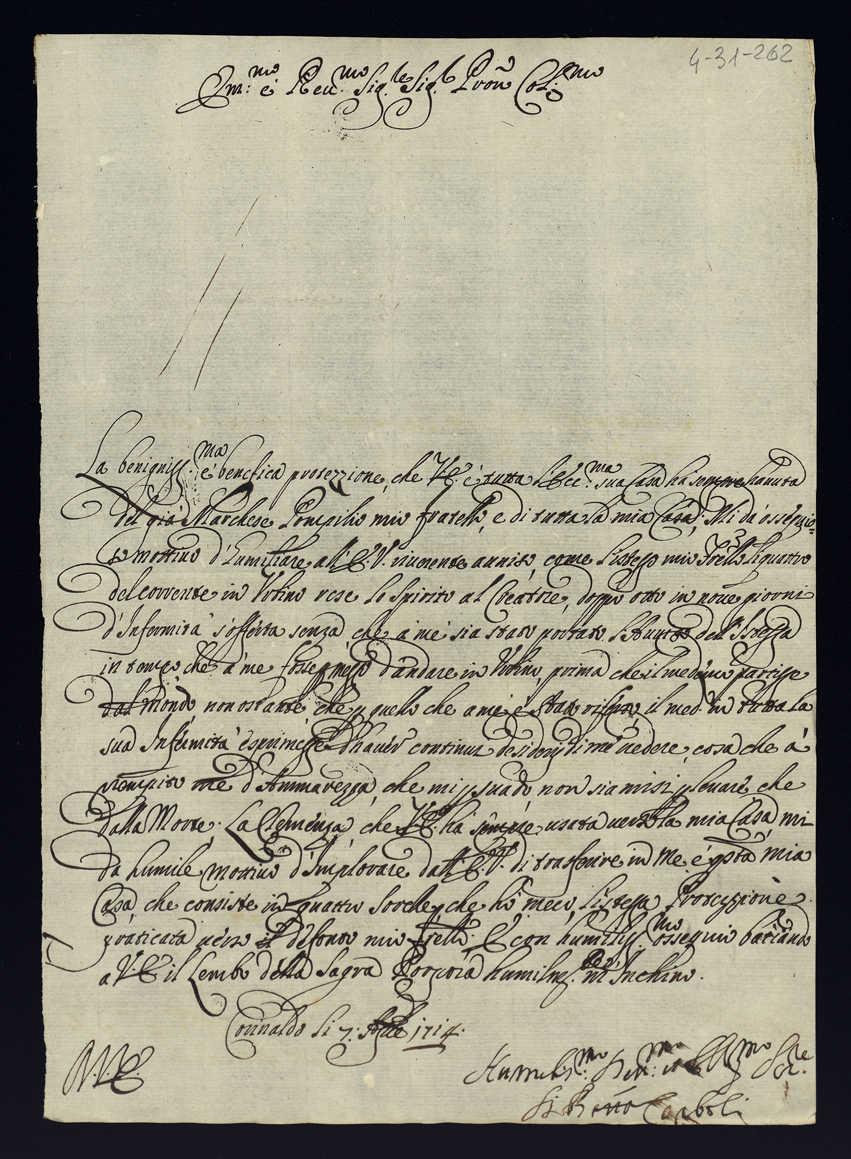 4-31-262
Em:mo è Reu:mo Sig:re Sig:r Pron Col:mo
La benigniss:ma è benefica protezzione, che V.E. è tutta l'Ecc:ma sua Casa ha sempre hauuta
del già Marchese Pompilio mio fratello, e di tutta la mia Casa, Mi dà ossequio-
so mottiuo d'humiliare all'E.V. riuerente auuiso, come l'istesso mio Frello li quattro
del corrente in Vrbino rese lo Spirito al Creatore, doppo otto in noue giorni
d'Infermità sofferta senza che à me sia stato portato l'
in tempo che à me d'andare in Vrbino, prima che il medemo partisse
dal Mondo non ostante che p quello che a me è stato il med:o in tutta la
sua Infirmità esprimesse d'hauer continui desiderij di me uedere, cosa che à
me d'Ammarezza, che mi psuado non sia mi si p leuare che
dalla Morte. La Clemenza, che V.E. hà sempre usata uerso la mia Casa, mi
da humile mottiuo d'Implorare dall'E.V. di trasferire in me, è qsta mia
Casa, che consiste in quattro Sorelle, che hò meco l'istessa Protezzione
praticata uerso il defonto mio frello. E con humiliss:mo ossequio baciando
a V.E. il Lembo della Sagra Porpora humilmte m'Inchino.
Corinaldo li 7: Aple 1714.
V.E.
Humiliss:mo Ser:re